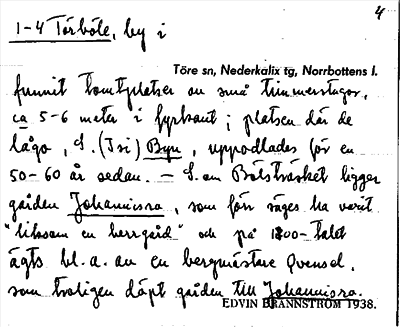 4
1-4 Törböle, by i
Töre sn, Nederkalix tg, Norrbottens l.
funnit tomtplatser av små timmerstugor,
ca 5-6 meter i fyrkant; platsen där de
lågo, S. (Isi) Byn, uppodlades för en
50-60 år sedan. - S. om Bölsträsket ligger
gården Johannisro, som förr säges ha varit
"liksom en herrgård" och på 1800-talet
ägts bl.a. av en bergmästare Qvensel,
som troligen döpt gården till Johannisro.
EDVIN BRÄNNSTRÖM 1938.